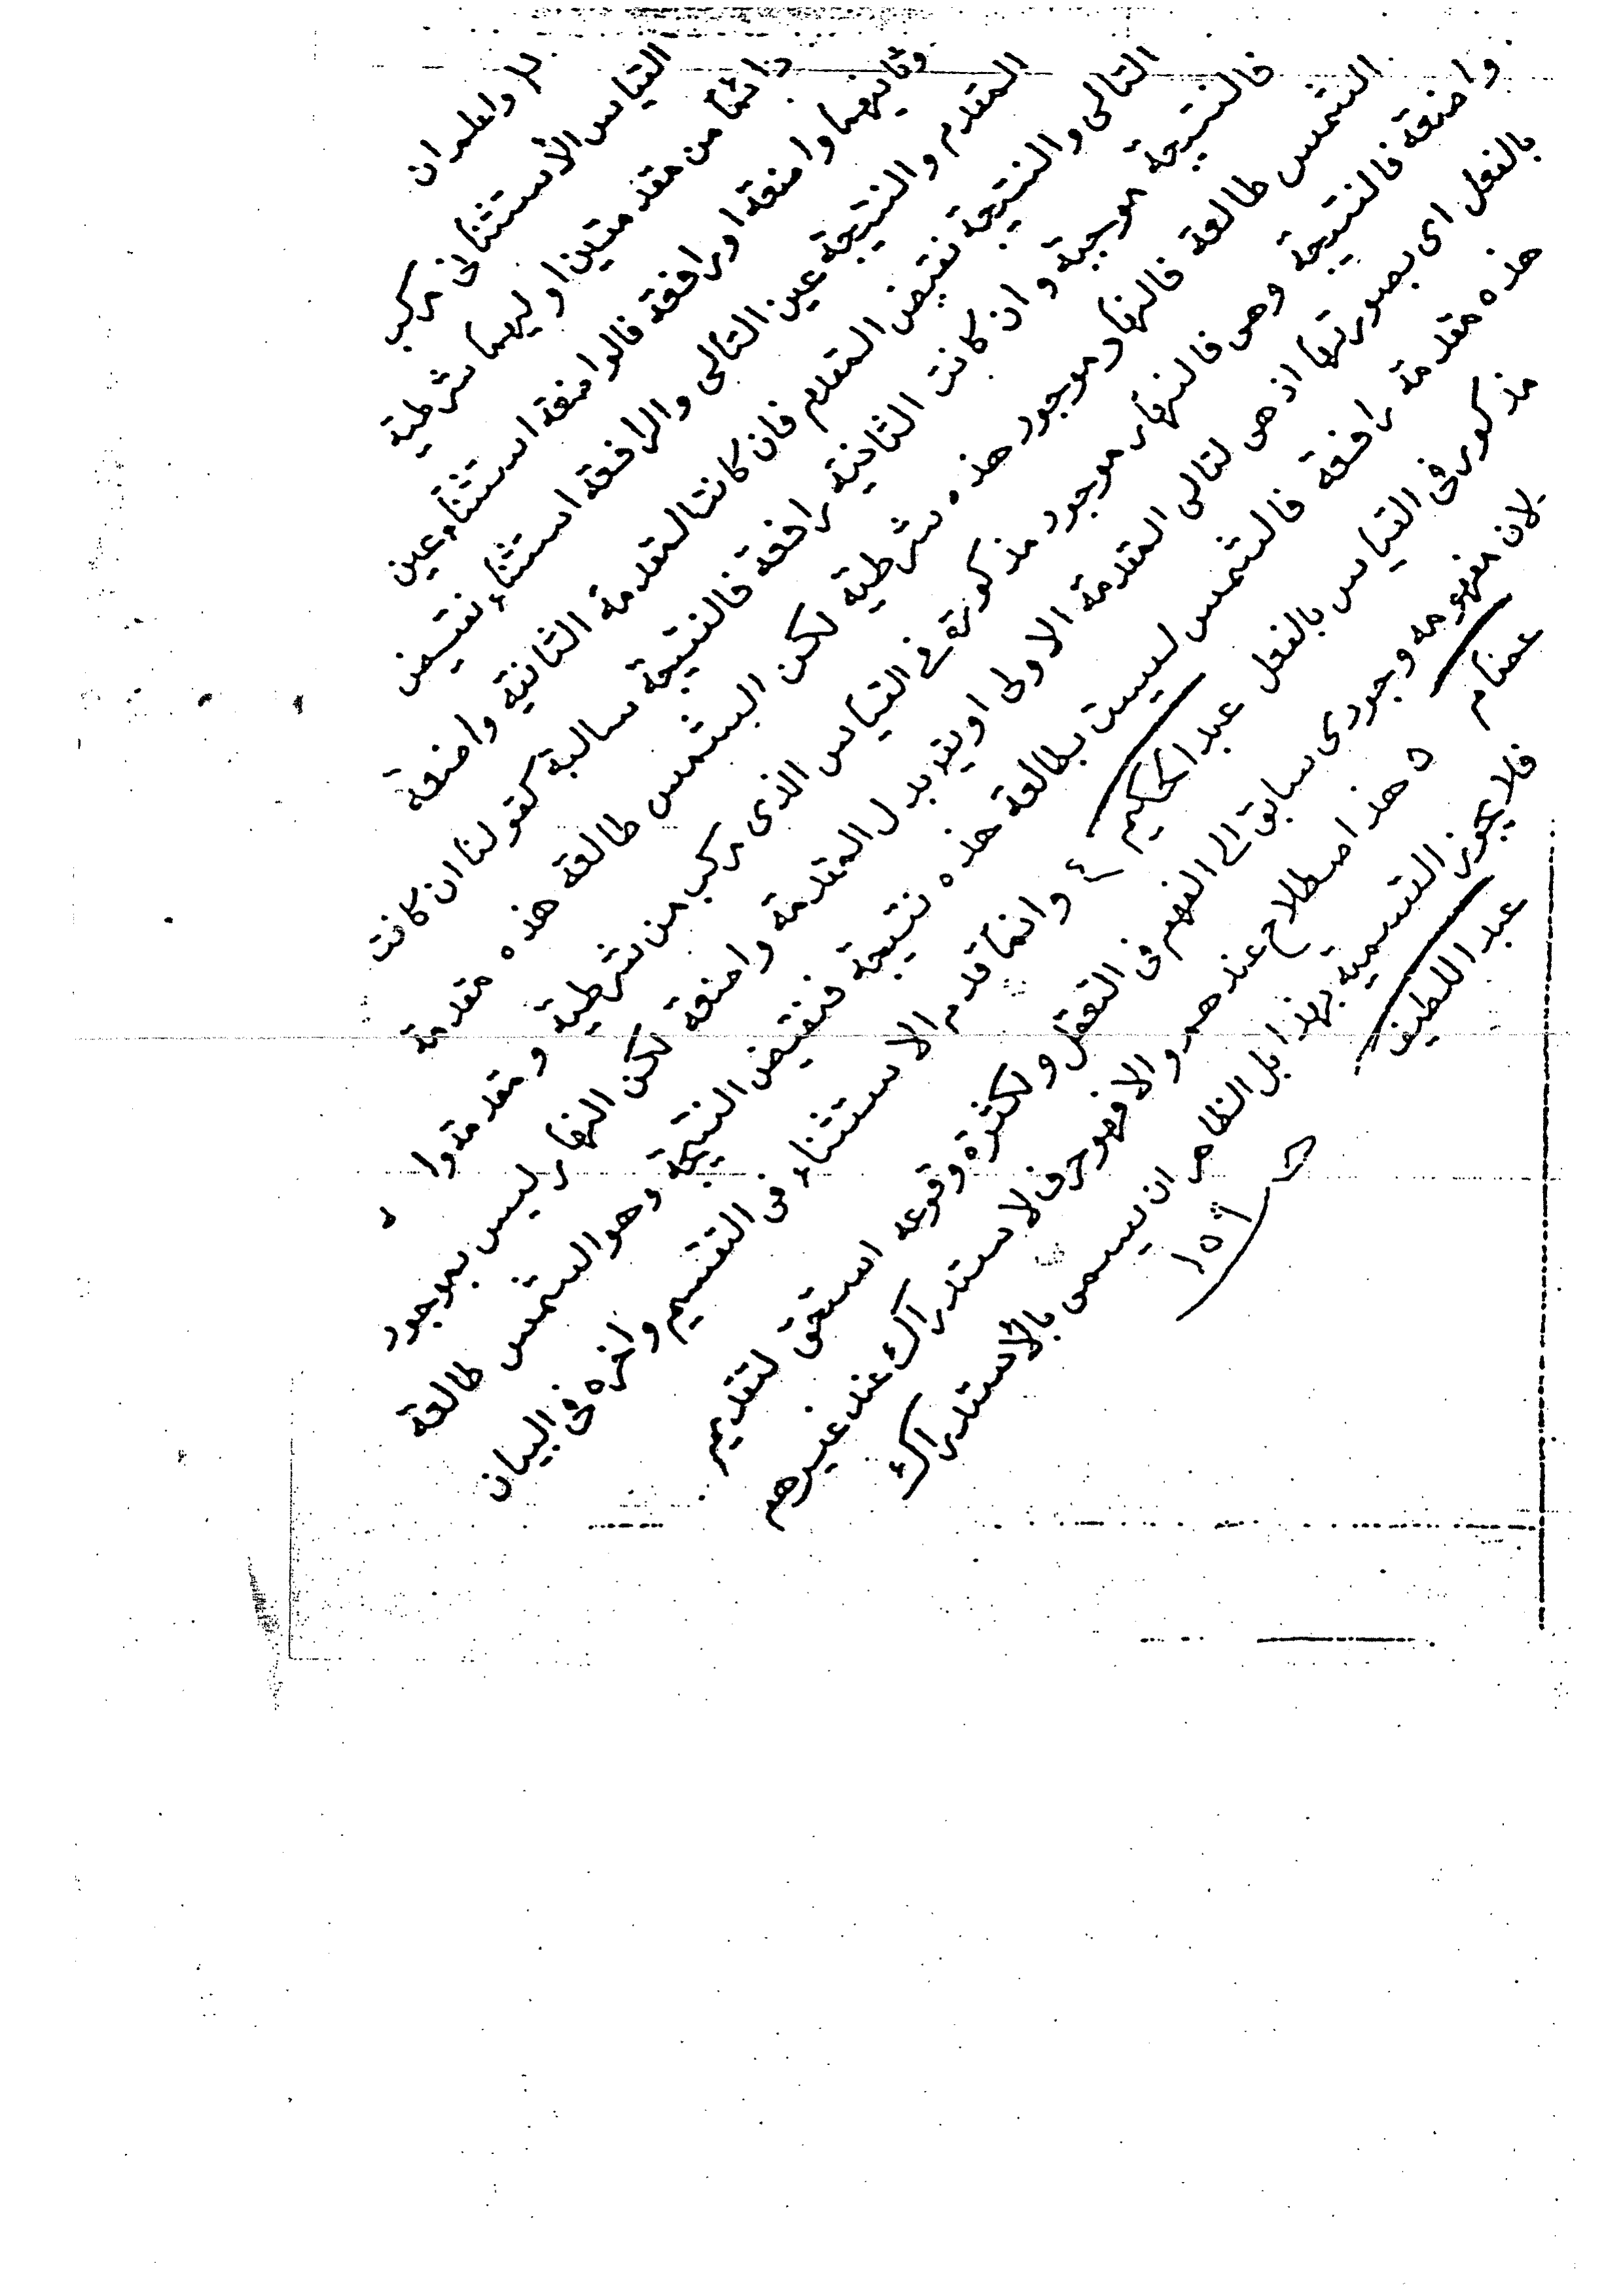 واعلم ان
القياس الاستثنائى مركب
دائما من مقدمتين اوليهما شرطية
وثانيهما واضعة او رافعة فالواضعة استثناء عين
المقدم والنتيجة عين التالى والرافعة استثناء نقيض
التالى والنتيجة نقيض المقدم فان كانت المقدمة الثانية واضعة
فالنتيجة موجبة وان كانت الثانية رافعة فالنتيجة سالبة كقولنا ان كانت
الشمس طالعة فالنهار موجود هذه شرطية لكن الشمس طالعة هذه مقدمة
واضعة فالنتيجة وهى فالنهار موجود مذكورة فى القياس الذى مركب من شرطية ومقدمة وا
بالفعل اى بصورتها اذ هى لتالى المقدمة الاولى او بدل المقدمة واضعة لكن النهار ليس بموجود
هذه مقدمة رافعة فالشمس ليست بطالعة هذه نتيجة فنقيض النتيجة وهو الشمس طالعة
مذكور فى القياس بالفعل عبد الحكيم ٤ وانما قدم الاستثناء فى التقسيم واخره فى البيان
لان مفهومه وجودى سابق الى الفهم فى التعقل ولكثرة وقوعه استحق لتقديم
عصام ٥ هذا اصطلاح عندهم والا فهو حرف لاستدراك عند غيرهم
فلا يجوز التسمية بهذا بل الظاهر ان يسمى بالاستدراك
عبد اللطيف